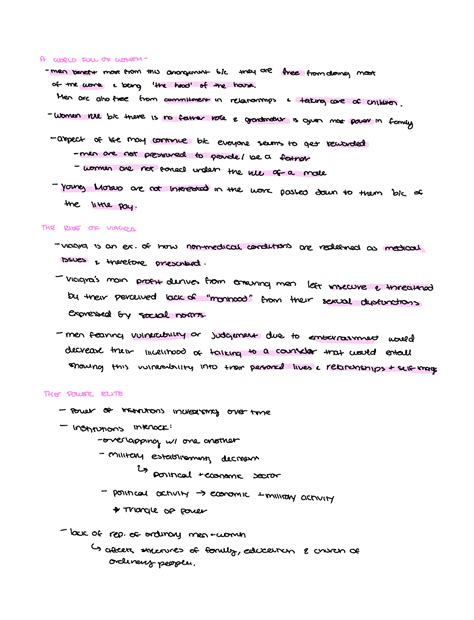 A WORLD FULL OF WOMEN -
- men benefit most from this arrangement b/c they are free from doing most
of the work & being "the head" of the house.
Men are also free from commitment in relationships & taking care of children.
- women rule b/c there is no father role & grandmother is given most power in family
- aspect of life may continue b/c everyone seems to get rewarded
- men are not pressured to provide / be a father
- women are not forced under the rule of a male
- young Mosuo are not interested in the work passed down to them b/c of
the little pay.
THE RISE OF VIAGRA
- viagra is an ex. of how non-medical conditions are redefined as medical
issues & therefore prescribed.
- viagra's main profit derives from ensuring men left insecure & threatened
by their perceived lack of "manhood" from their sexual dysfunctions
expressed by social norms.
- men fearing vulnerability or judgement due to embarrassment would
decrease their likelihood of talking to a counselor that would entail
showing this vulnerability into their personal lives & relationships + self-image
THE POWER ELITE
- Power of institutions increasing over time
- institutions interlock:
- overlapping w/ one another
- military establishment decisions
↳ political + economic sector
- political activity → economic + military activity
* Triangle of power
- lack of rep. of ordinary men + women
↳ affects structures of family, education & church of
ordinary people.